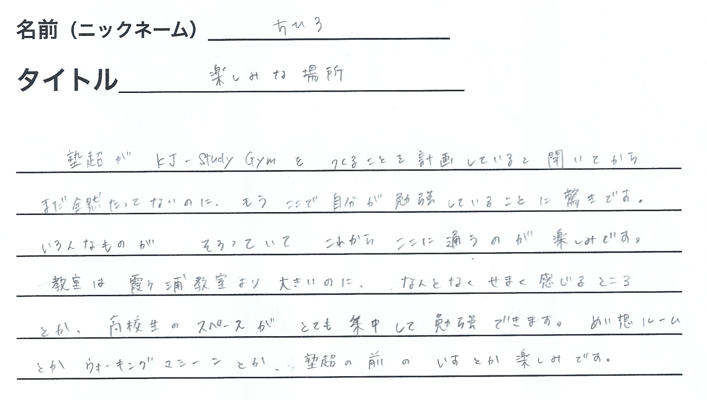 名前（ニックネーム） ちひろ
タイトル 楽しみな場所
塾超が KJ-Study Gymを つくることを計画していると 聞いてから
まだ全然たってないのに、もう ここで 自分が 勉強していることに驚きです。
いろんなものが そろっていて これから ここに 通うのが 楽しみです。
教室は 霞ヶ浦教室より 大きいのに、なんとなく せまく 感じるところ
とか、高校生の スペースが とても 集中して 勉強できます。めい想ルーム
とか ウォーキングマシーンとか、塾超の前の いすとか 楽しみです。